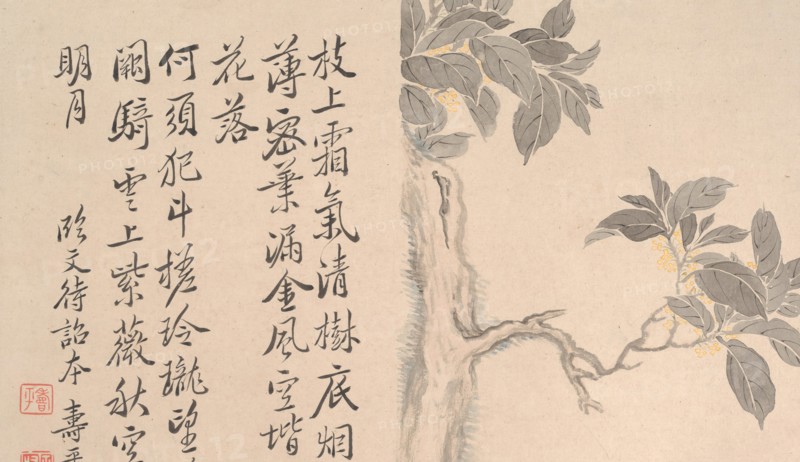 枝上霜氣清樹底烟
薄密葉漏金風空堦
花落
何須犯斗槎玲瓏望
闕騎雲上紫薇秋空
明月
臨文待詔本 壽平
壽平